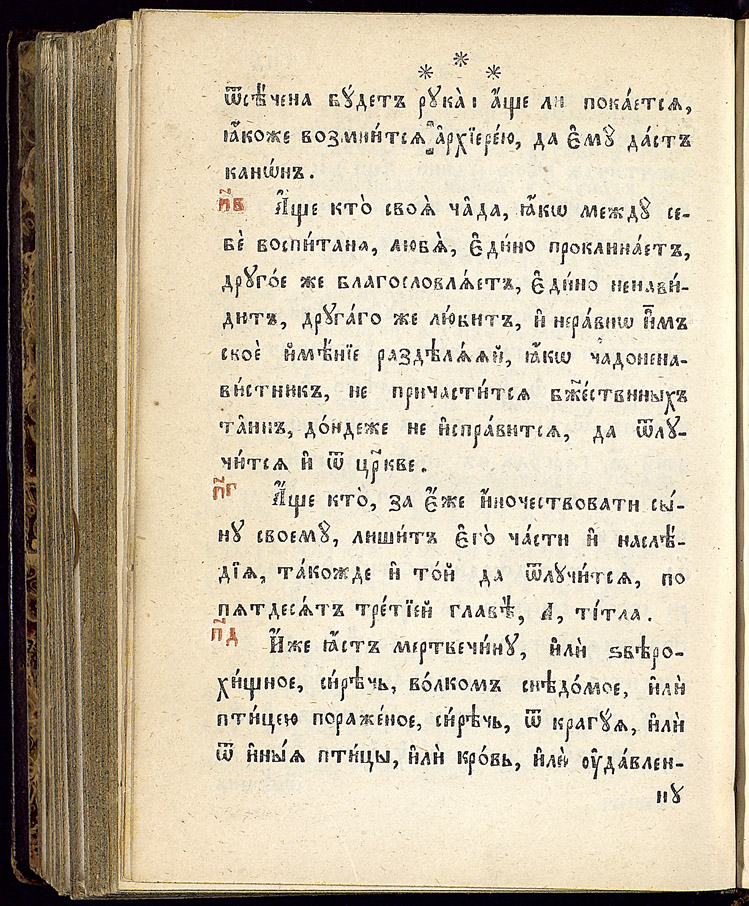 * * *
ѿсѣ́чена бꙋ́детъ рꙋка̀: а҆́ще ли пока́ется,
ꙗ҆́коже возмни́тсѧ а҆рхїере́ю, да є҆мꙋ̀ да́стъ
канѡ́нъ.
п҃в А҆́ще кто̀ своѧ̑ ча̑да, ꙗ҆́кѡ междꙋ̀ се-
бѐ воспи́тана, любѧ̀, є҆ди́но проклина́етъ,
дрꙋго́е же благословлѧ́етъ, є҆ди́но ненави́-
дитъ, дрꙋга́го же лю́битъ, и҆ нера́внѡ и҆̀мъ
своѐ и҆мѣ́нїе раздѣлѧ́ѧй, ꙗ҆́кѡ чадонена-
ви́стникъ, не причасти́тсѧ бж҃е́ствнныхъ
та̑инъ, до́ндеже не и҆спра́витсѧ, да ѿлꙋ-
чи́тсѧ и҆ ѿ цр҃кве.
п҃г А҆́ще кто̀, за є҆́же и҆́ночествовати сы́-
нꙋ своемꙋ̀, лиши́тъ є҆го̀ ча́сти и҆ наслѣ́-
дїѧ, та́кожде и҆ то́й да ѿлꙋчи́тсѧ, по
пѧтдесѧ́тъ тре́тїей главѣ̀, А҆, ті́тла.
п҃д И҆́же ꙗ҆́стъ мертвечи́нꙋ, и҆лѝ ѕвѣро-
хи́щное, си́рѣчь, во́лкомъ снѣдо́мое, и҆лѝ
пти́цею пораже́ное, си́рѣчь, ѿ крагꙋ́ѧ, и҆лѝ
ѿ и҆ны́ѧ пти́цы, и҆лѝ кро́вь, и҆лѝ ᲂу҆да́влен-
нꙋ